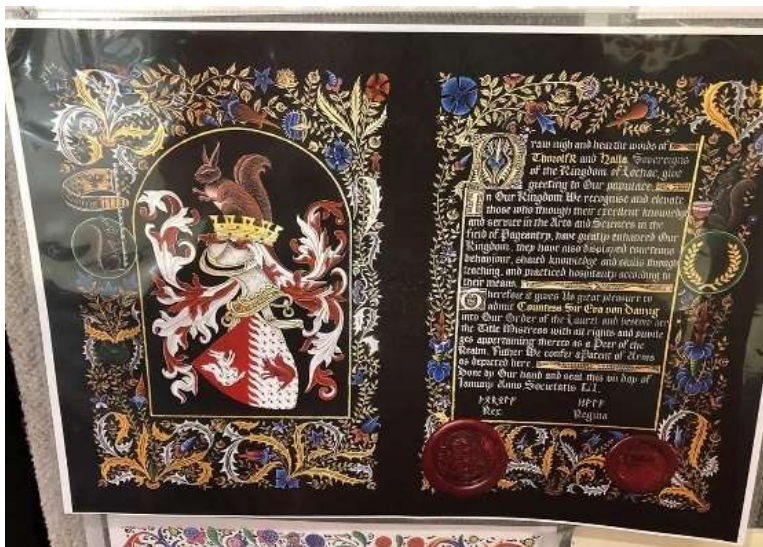 Draw nigh and hear the words of
Thorolfr and Halla Sovereigns
of the Kingdom of Lochac, give
greeting to Our populace,
In Our Kingdom We recognise and elevate
those who through their excellent knowledge
and service in the Arts and Sciences in the
field of Pageantry, have greatly enhanced Our
Kingdom, they have also displayed courteous
behaviour, shared knowledge and skills through
teaching, and practiced hospitality according to
their means.
Therefore it gives Us great pleasure to
admit Countess Sir Eva von Danzig
into Our Order of the Laurel and bestow her
the Title Mistress with all rights and privile
ges appertaining thereto as a Peer of the
Realm. Futher We confer a Patent of Arms
as depicted here.
Done by Our hand and seal this day of
January Anno Societatis LI.
ᚦᚬᚱᚬᛚᚠᚱ
Rex
Regina